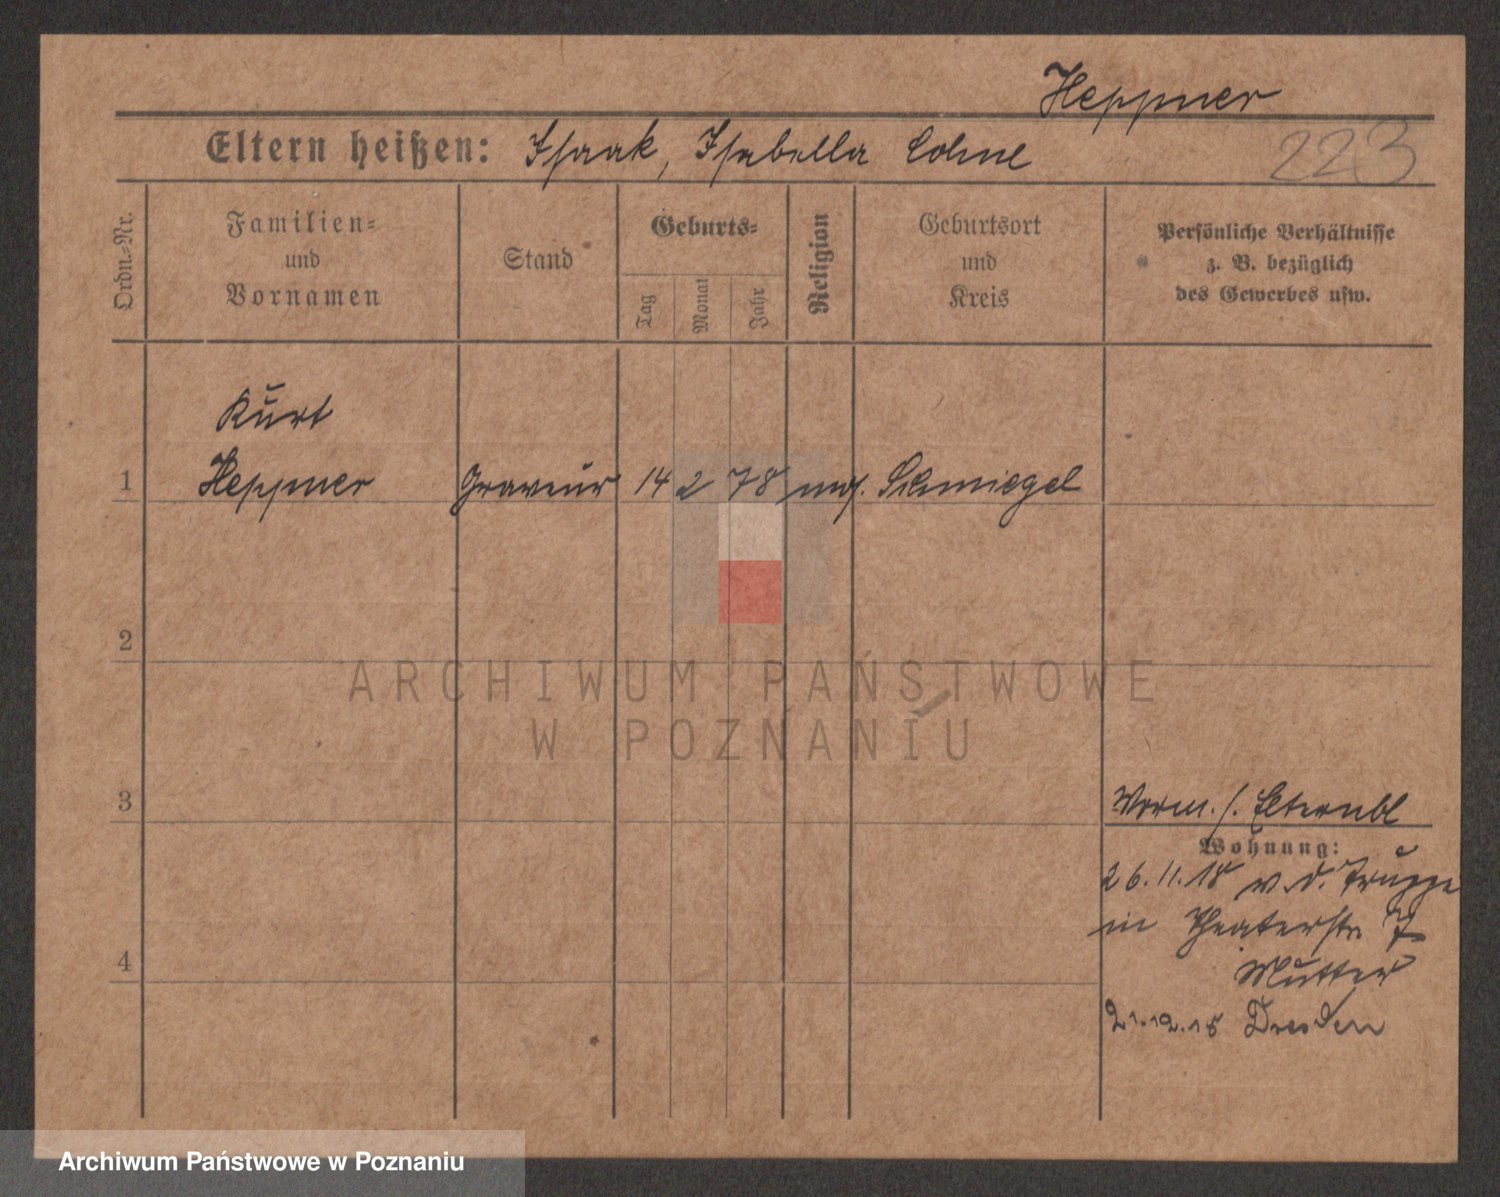 Heppner
Eltern heißen: Isaak, Isabella Cohne
223
Ordn.-Nr.
Familien=
und
Vornamen
Stand
Geburts=
Tag
Monat
Jahr
Religion
Geburtsort
und
Kreis
Persönliche Verhältnisse
z. B. bezüglich
des Gewerbes usw.
Kurt
1 Heppner Graveur 14 2 78 mos. Schmiegel
2
3
4
Vorm. s. Elternbl
Wohnung:
26.11.18 v. d. Truppe
in Theaterstr. 7
Mutter
21.12.18 Dresden
ARCHIWUM PAŃSTWOWE
W POZNANIU
Archiwum Państwowe w Poznaniu